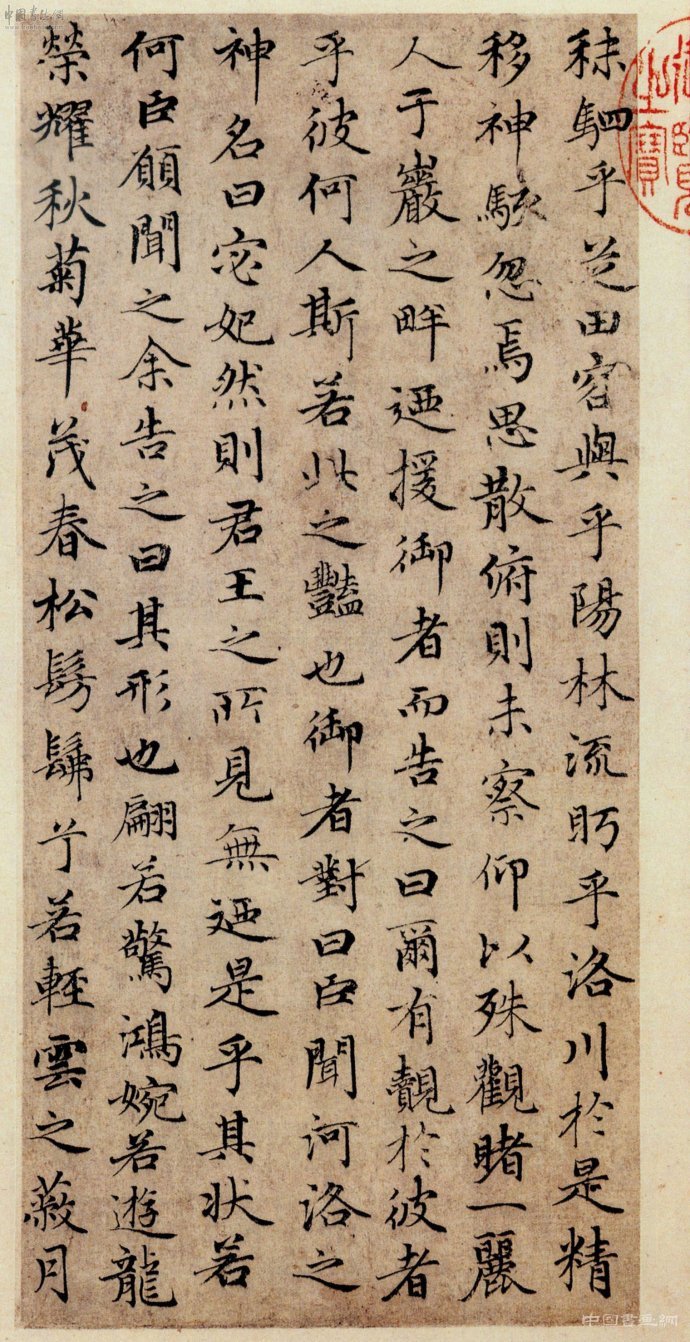 秣駟乎芝田容與乎陽林流眄乎洛川於是精
移神駭忽焉思散俯則未察仰以殊觀睹一麗
人于巖之畔迺援御者而告之曰爾有覿於彼者
乎彼何人斯若此之豔也御者對曰臣聞河洛之
神名曰宓妃然則君王之所見無迺是乎其狀若
何臣願聞之余告之曰其形也翩若驚鴻婉若遊龍
榮耀秋菊華茂春松髣髴兮若輕雲之蔽月
中国書画網